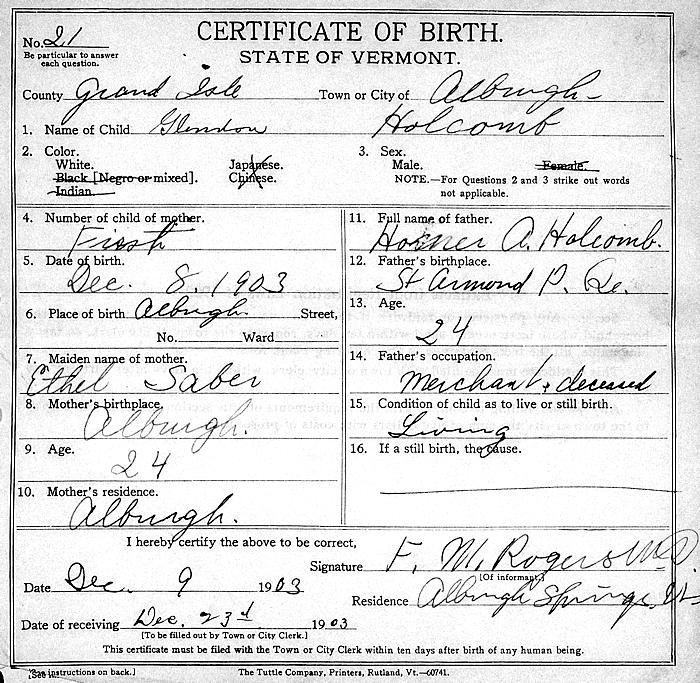 CERTIFICATE OF BIRTH.
No. 21
Be particular to answer each question.
STATE OF VERMONT.
County Grand Isle Town or City of Alburgh
1. Name of Child Glendon Holcomb
2. Color.
White. Japanese.
Black [Negro or mixed]. Chinese.
Indian.
3. Sex.
Male. Female.
NOTE.—For Questions 2 and 3 strike out words not applicable.
4. Number of child of mother.
First
5. Date of birth.
Dec. 8, 1903
6. Place of birth Alburgh. Street,
No. Ward
7. Maiden name of mother.
Ethel Saber
8. Mother's birthplace.
Alburgh.
9. Age.
24
10. Mother's residence.
Alburgh.
11. Full name of father.
Homer A. Holcomb.
12. Father's birthplace.
St Armond P. Qe.
13. Age.
24
14. Father's occupation.
Merchant, deceased
15. Condition of child as to live or still birth.
Living
16. If a still birth, the cause.
I hereby certify the above to be correct,
Signature F. M. Rogers M.D.
[Of informant.]
Date Dec. 9 1903
Residence Alburgh Springs, Vt
Date of receiving Dec. 23d 1903
[To be filled out by Town or City Clerk.]
This certificate must be filed with the Town or City Clerk within ten days after birth of any human being.
[See instructions on back.] The Tuttle Company, Printers, Rutland, Vt.—60741.